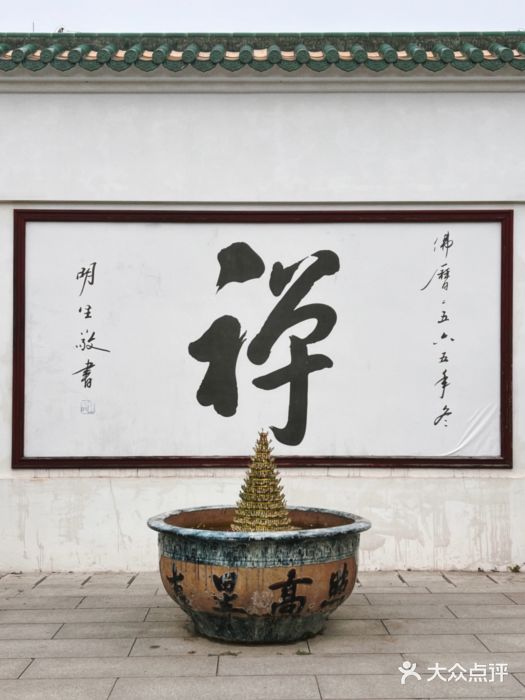 佛曆二五六五年冬
禅
明生敬書
吉星高照
大众点评